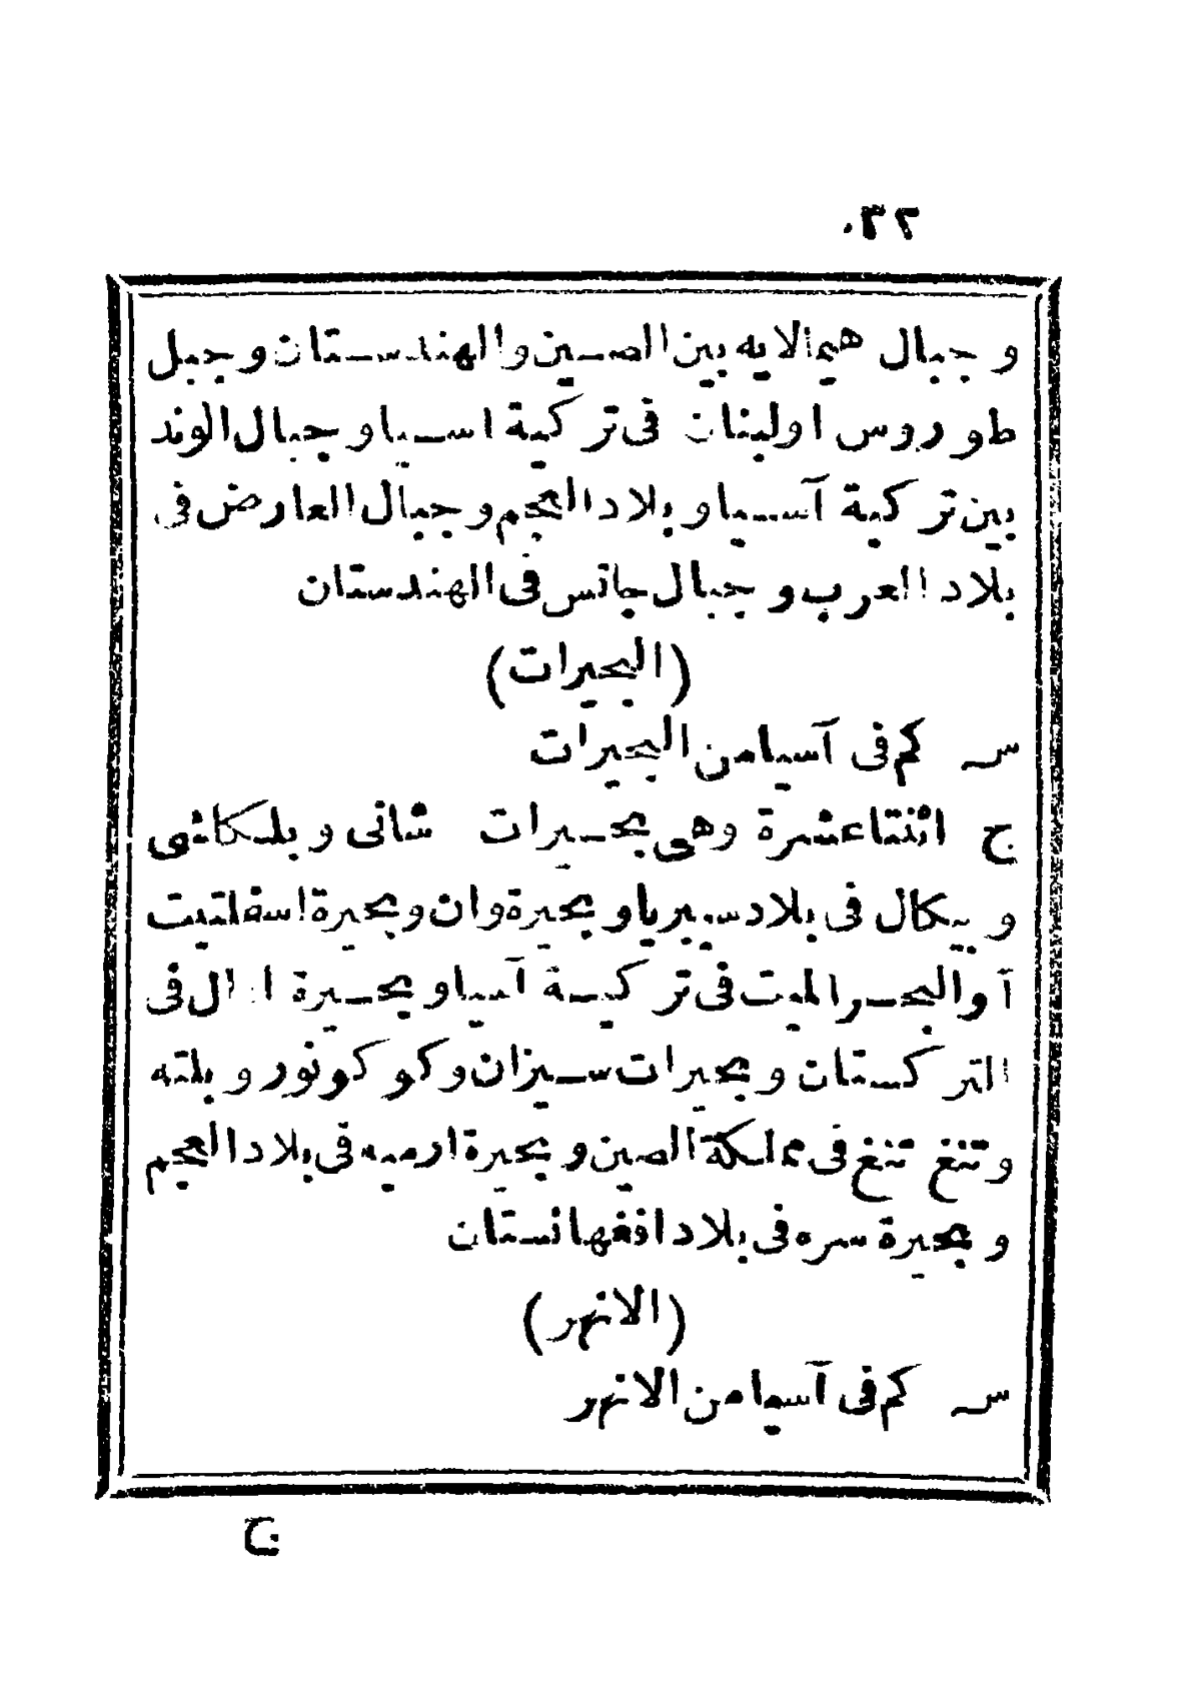 ٣٢
وجبال هيمالايه بين الصين والهندستان وجبل
طوروس اولبنان فى تركية اسيا وجبال الوند
بين تركية آسيا وبلاد العجم وجبال العارض فى
بلاد العرب وجبال جاتس فى الهندستان
(البحيرات)
س كم فى آسيا من البحيرات
ج اثنتا عشرة وهى بحيرات شانى وبلكاشى
وبيكال فى بلاد سيبريا وبحيرة وان وبحيرة اسفلتيت
آ والبحر الميت فى تركية آسيا وبحيرة ارال فى
التركستان وبحيرات سيزان وكوكونور وبلته
وتنغ تنغ فى مملكة الصين وبحيرة ارميه فى بلاد العجم
وبحيرة سره فى بلاد افغهانستان
(الانهر)
س كم فى آسيا من الانهر
ج